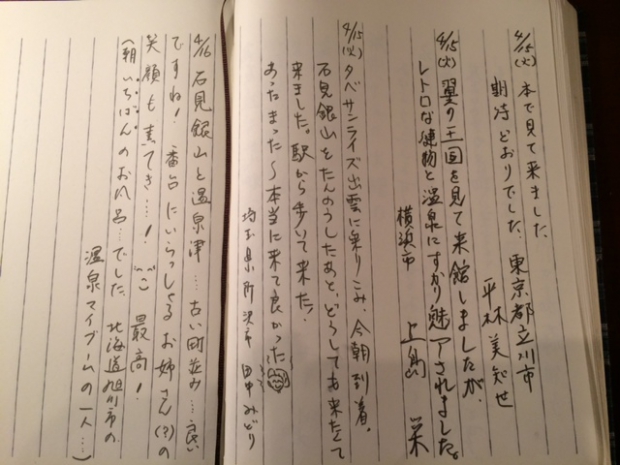 4/15(火) 本で見て来ました
期待どおりでした。 東京都立川市
平林美知世
4/15(火) 翼の王国を見て来館しましたが、
レトロな建物と温泉にすかり魅了されました。
横浜市 上島 栄
4/15(火) 夕べサンライズ出雲に乗りこみ、今朝到着。
石見銀山をたんのうしたあと、どうしても来たくて
来ました。駅から歩いて来た。
あったまった〜本当に来て良かった
埼玉県所沢市 田中みどり
4/16 石見銀山と温泉津…古い町並み…良い
ですね! 番台にいらっしゃるお姉さん(?)の
笑顔も すてき…! 最高!
(朝いちばんのお風呂…でした。 北海道旭川市の
温泉マイブームの一人…)